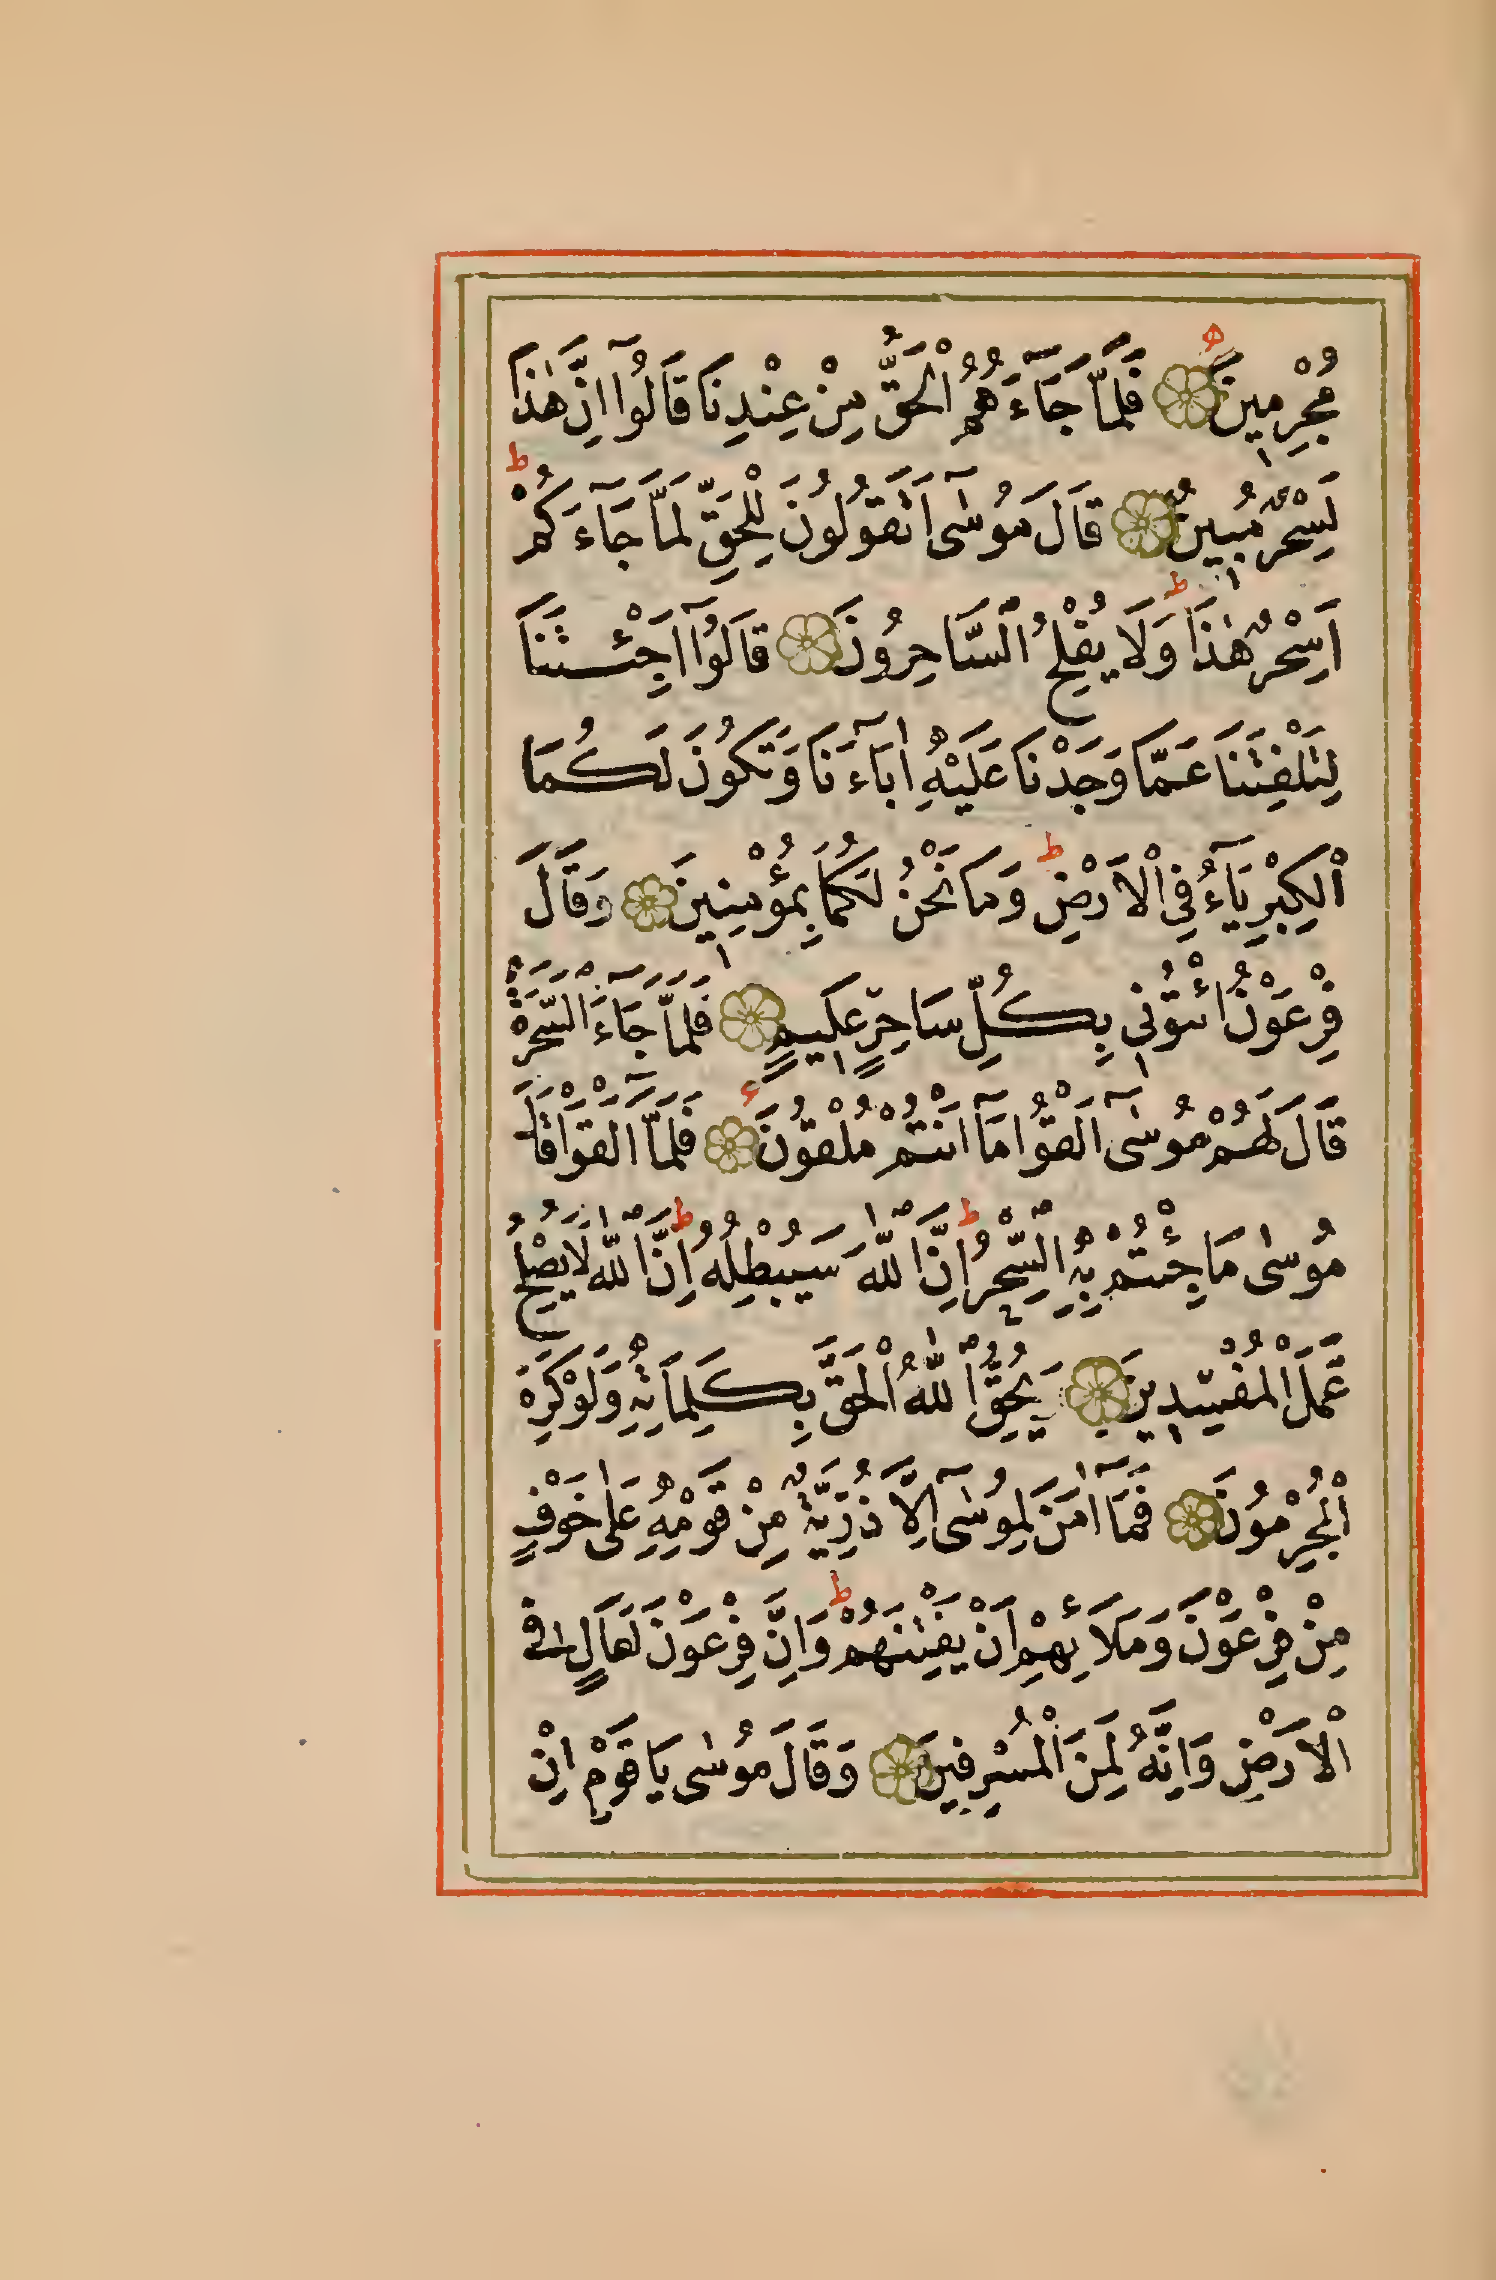 مُجْرِمِينَ فَلَمَّا جَآءَهُمُ الْحَقُّ مِنْ عِنْدِنَا قَالُوٓا اِنَّ هٰذَا
لَسِحْرٌ مُبِينٌ قَالَ مُوسٰٓى اَتَقُولُونَ لِلْحَقِّ لَمَّا جَآءَكُمْ ط
اَسِحْرٌ هٰذَا ط وَلَا يُفْلِحُ السَّاحِرُونَ قَالُوٓا اَجِئْتَنَا
لِتَلْفِتَنَا عَمَّا وَجَدْنَا عَلَيْهِ اٰبَآءَنَا وَتَكُونَ لَكُمَا
الْكِبْرِيَآءُ فِي الْاَرْضِ ط وَمَا نَحْنُ لَكُمَا بِمُؤْمِنِينَ وَقَالَ
فِرْعَوْنُ ائْتُونِي بِكُلِّ سَاحِرٍ عَلِيمٍ فَلَمَّا جَآءَ السَّحَرَةُ
قَالَ لَهُمْ مُوسٰٓى اَلْقُوا مَآ اَنْتُمْ مُلْقُونَ فَلَمَّآ اَلْقَوْا قَالَ
مُوسٰى مَا جِئْتُمْ بِهِ السِّحْرُ ط اِنَّ اللّٰهَ سَيُبْطِلُهُ ط اِنَّ اللّٰهَ لَا يُصْلِحُ
عَمَلَ الْمُفْسِدِينَ وَيُحِقُّ اللّٰهُ الْحَقَّ بِكَلِمَاتِهِ وَلَوْ كَرِهَ
الْمُجْرِمُونَ فَمَآ اٰمَنَ لِمُوسٰٓى اِلَّا ذُرِّيَّةٌ مِنْ قَوْمِهِ عَلٰى خَوْفٍ
مِنْ فِرْعَوْنَ وَمَلَائِهِمْ اَنْ يَفْتِنَهُمْ ط وَاِنَّ فِرْعَوْنَ لَعَالٍ فِي
الْاَرْضِ وَاِنَّهُ لَمِنَ الْمُسْرِفِينَ وَقَالَ مُوسٰى يَا قَوْمِ اِنْ